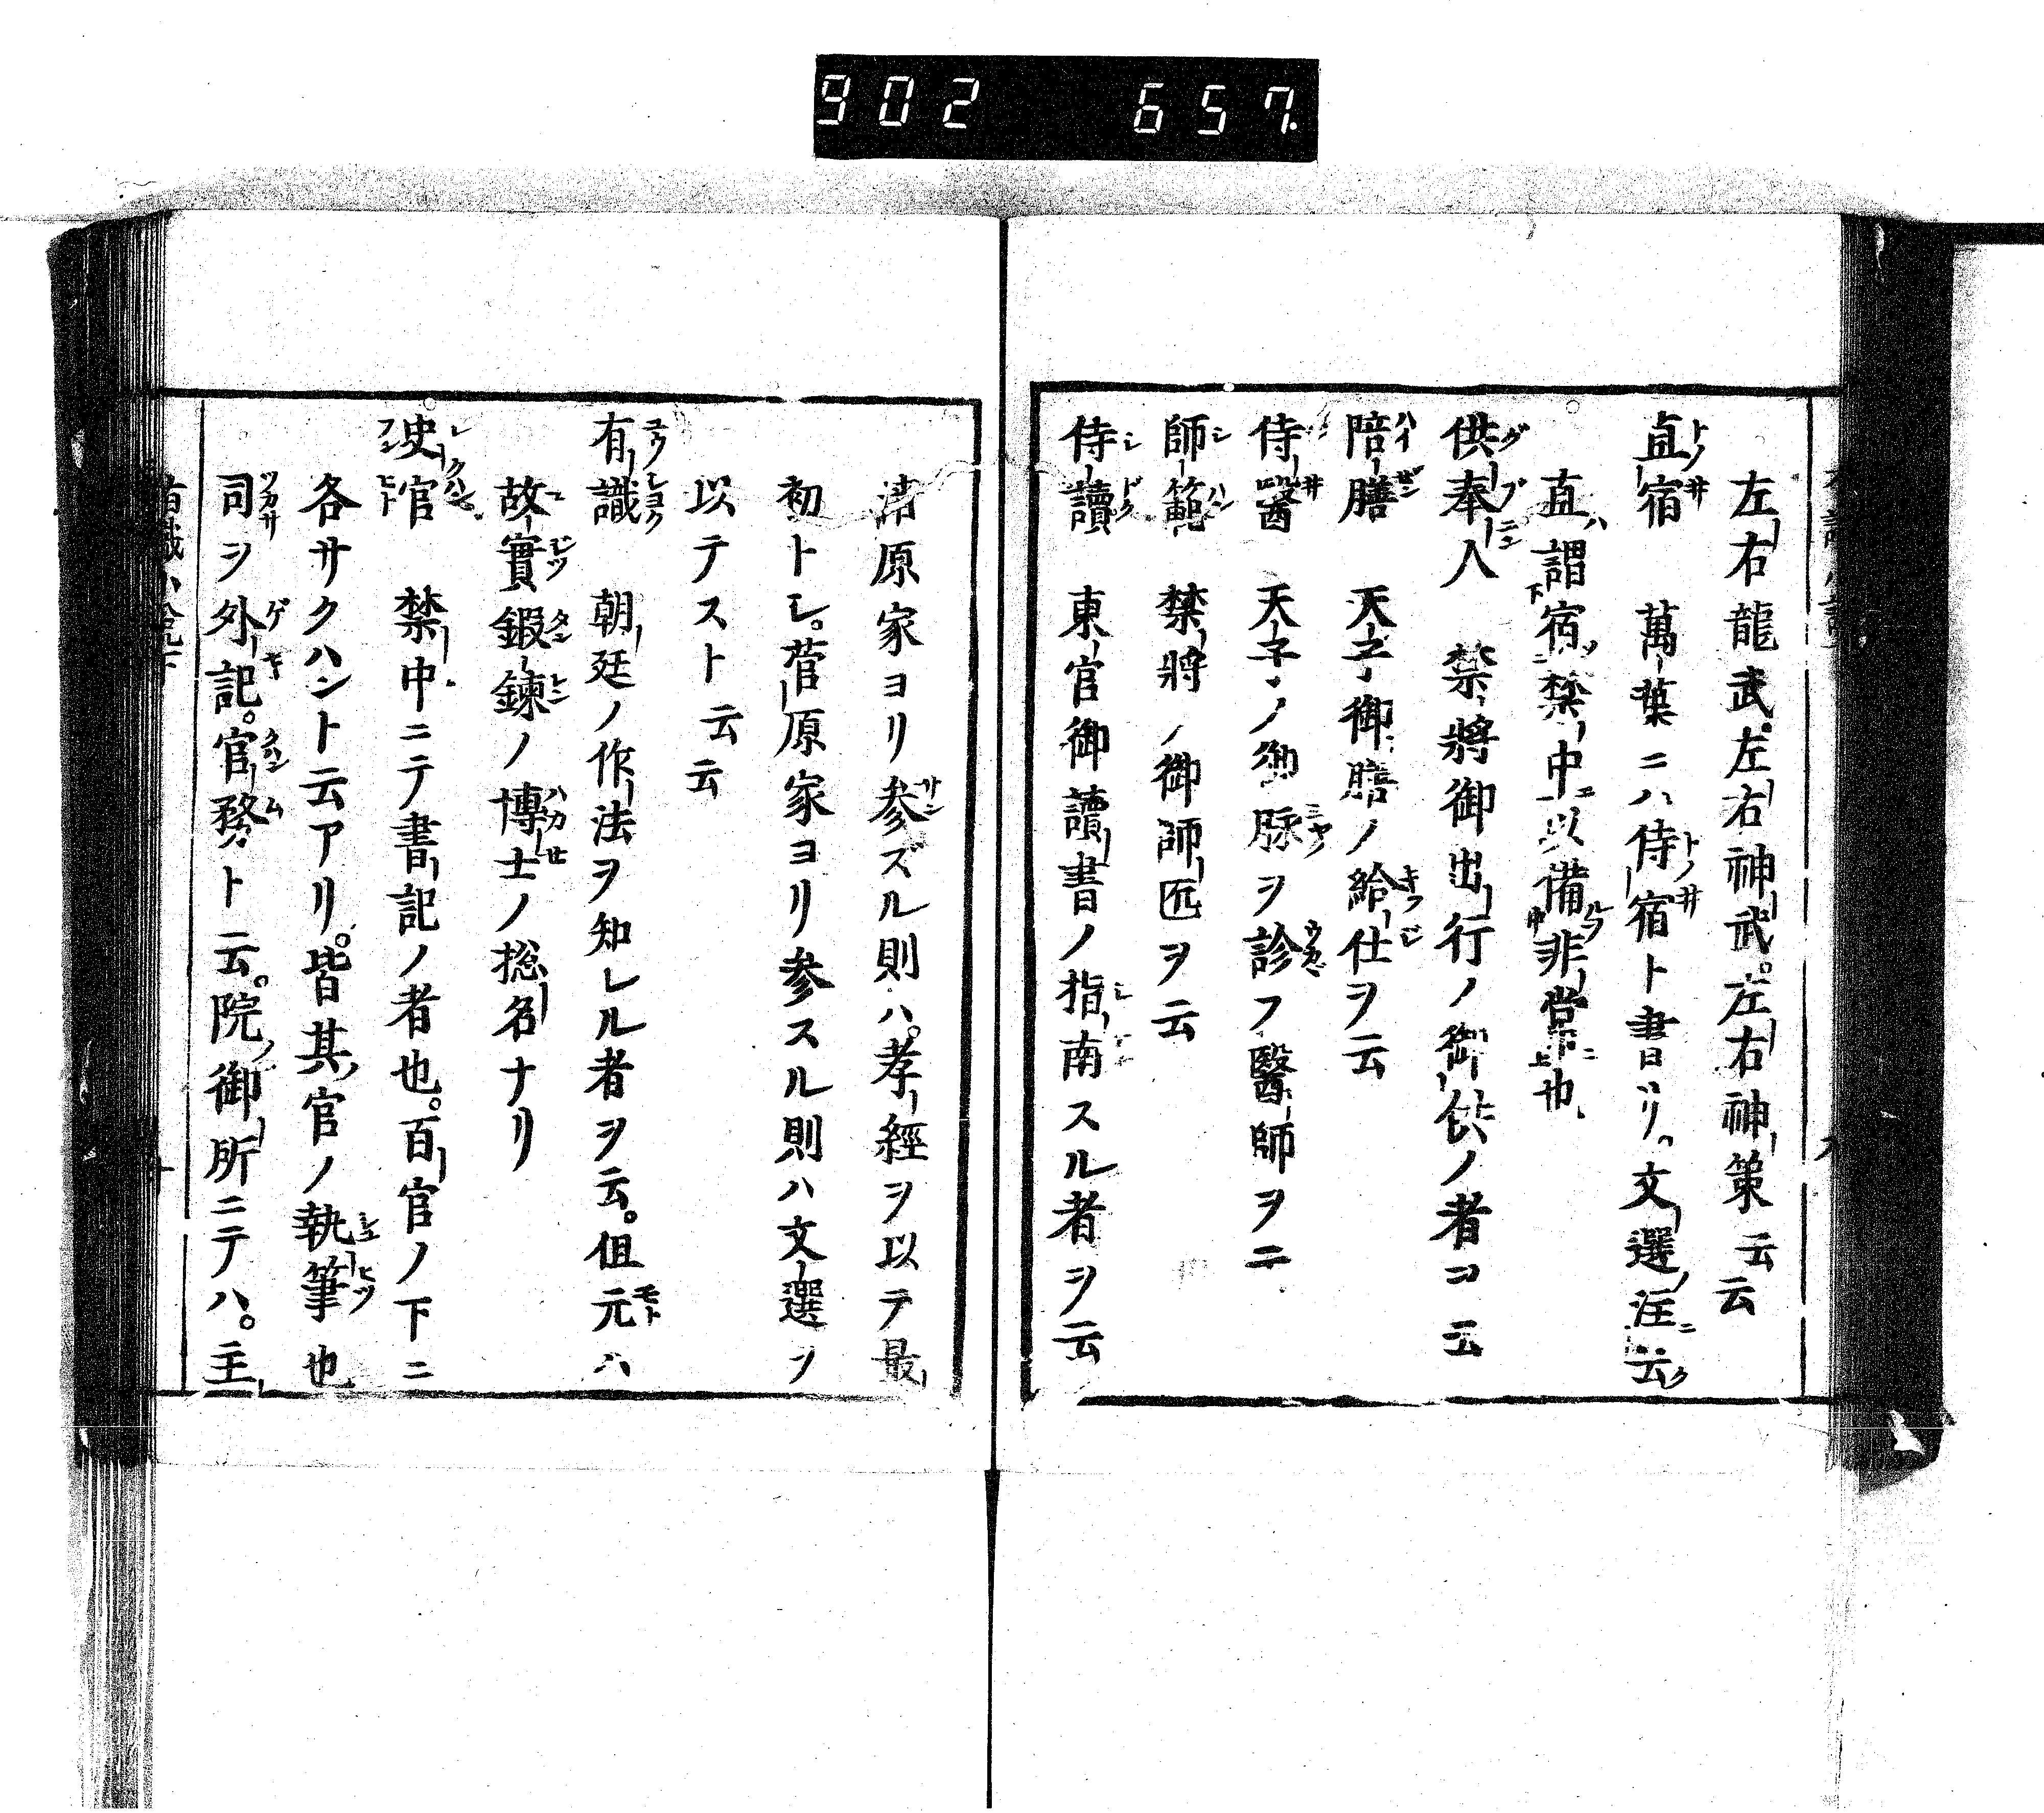 902 657.
左右龍武。左右神武。左右神策云云
直宿 萬葉ニハ侍宿ト書リ。文選ノ注ニ云ク
直ハ謂宿禁中以備非常也
供奉人 禁將御出行ノ御供ノ者ヲ云
陪膳 天子御膳ノ給仕ヲ云
侍醫 天子ノ御脉ヲ診フ醫師ヲ云
師範 禁將ノ御師匠ヲ云
侍讀 東官御讀書ノ指南スル者ヲ云
清原家ヨリ参ズル則ハ。孝經ヲ以テ最
初トシ。菅原家ヨリ参スル則ハ文選ヲ
以テスト云云
有識 朝廷ノ作法ヲ知レル者ヲ云。但元ハ
故實鍛鍊ノ博士ノ捴名ナリ
史官 禁中ニテ書記ノ者也。百官ノ下ニ
各サクハント云アリ。皆其官ノ執筆也
司ヲ外記。官務ト云。院御所ニテハ。主